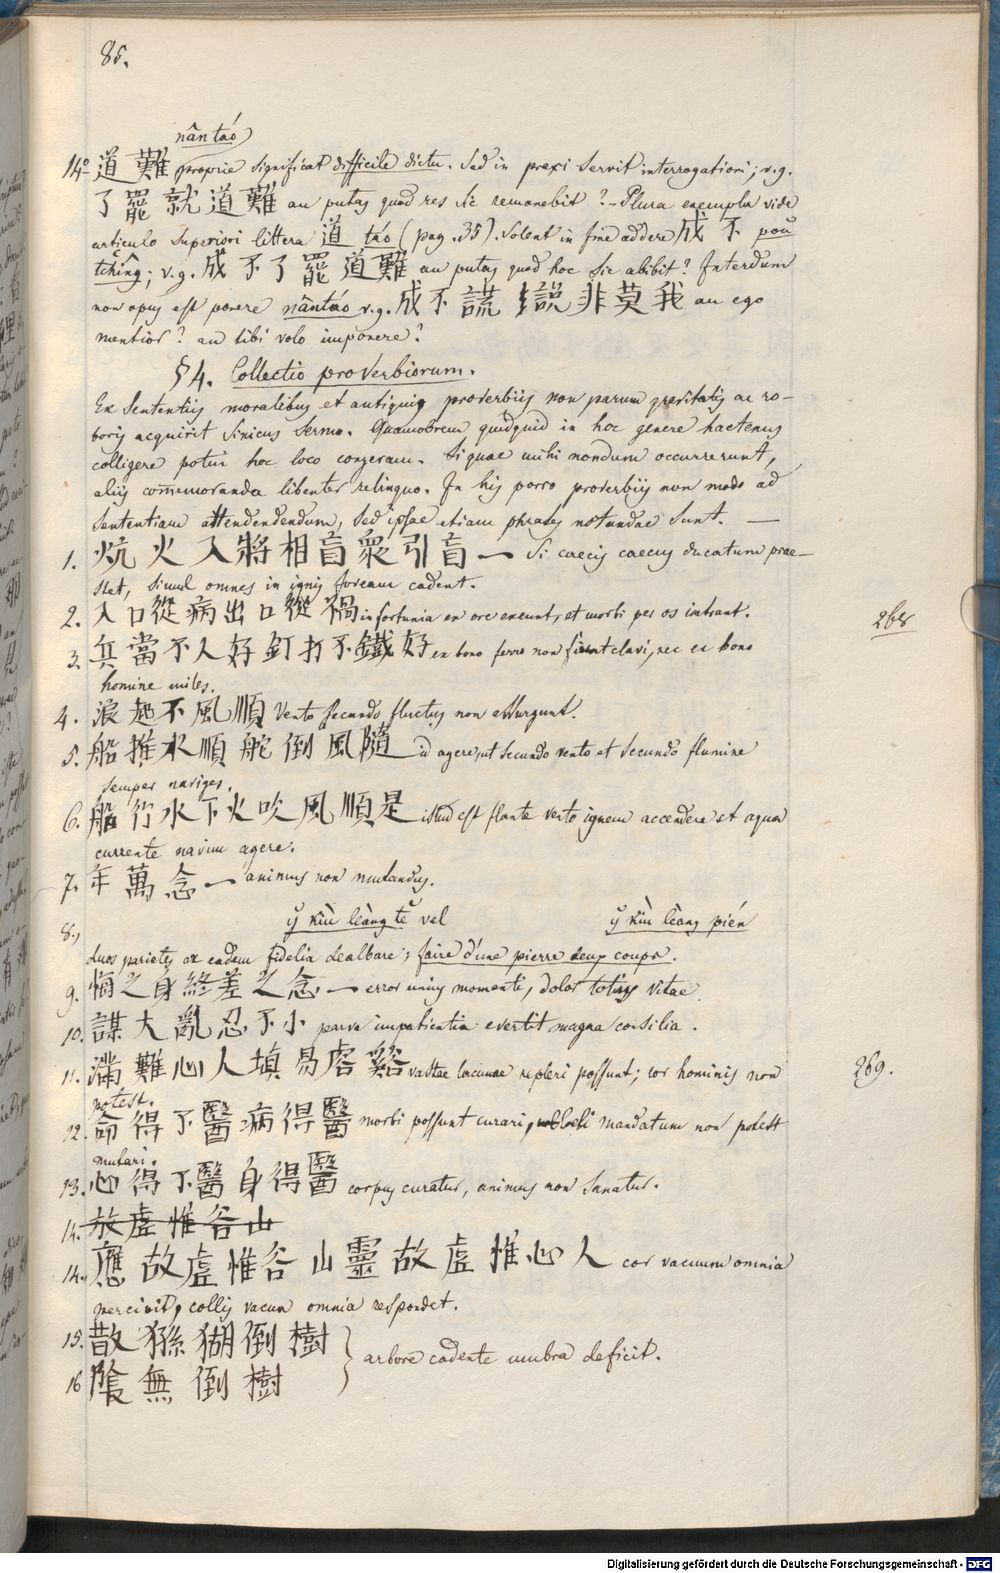 85.
nân táo
14º 道難 proprie significat difficile dictu. Sed in praxi servit interrogationi; v.g.
了罷就道難 an putas quod res sic remanebit? – Plura exempla vide
articulo superiori littera 道 táo (pag. 35). Solent in fine addere 成不 poŭ
tchîng; v.g. 成不了罷道難 an putas quod hoc sic abibit? Interdum
non opus est ponere nântáo v.g. 成不謊說非莫我 an ego
mentior? an tibi volo imponere?
§ 4. Collectio proverbiorum.
Ex sententiis moralibus et antiquis proverbiis non parum gravitatis ac ro-
boris acquirit sinicus sermo. Quamobrem quidquid in hoc genere hactenus
colligere potui hoc loco congeram. Si quae mihi nondum occurrerunt,
aliis commemoranda libenter relinquo. In his porro proverbiis non modo ad
sententiam attendendendum, sed ipsae etiam phrases notandae sunt. —
1. 炕火入將相盲衆引盲一 Si caecis caecus ducatum prae-
stat, simul omnes in ignis foveam cadent.
2. 入口從病出口從禍 infortunia ex ore exeunt, et morbi per os intrant.
268
3. 兵當不人好釘打不鐵好 ex bono ferro non fiunt clavi, nec ex bono
homine miles.
4. 浪起不風順 Vento secundo fluctus non assurgunt.
5. 船推水順舵倒風隨 id agere, ut secundo vento et secundo flumine
semper naviges.
6. 船行水下火吹風順是 istud est flante vento ignem accendere et aqua
currente navim agere.
7. 年萬念一 animus non mutandus.
8., y̆ kiù leàng tĕ vel y̆ kiù leàng pién
duos parietes ex eadem fidelia dealbare; faire d'une pierre deux coups.
9. 悔之身終差之念一 error unius momenti, dolor totius vitae
10. 謀大亂忍不小 parva impatientia evertit magna consilia.
11. 滿難心人塡易壑谿 vastae lacunae repleri possunt; cor hominis non
269.
potest.
12. 命得不醫病得醫 morbi possunt curari, mandatum non potest
mutari.
13. 心得不醫身得醫 corpus curatur, animus non sanatur.
14. 故虛惟谷山
14. 應故虛惟谷山靈故虛惟心人 cor vacuum omnia
percipit, collis vacua omnia respondet.
15. 散猻猢倒樹
16 陰無倒樹 } arbore cadente umbra deficit.
Digitalisierung gefördert durch die Deutsche Forschungsgemeinschaft - DFG